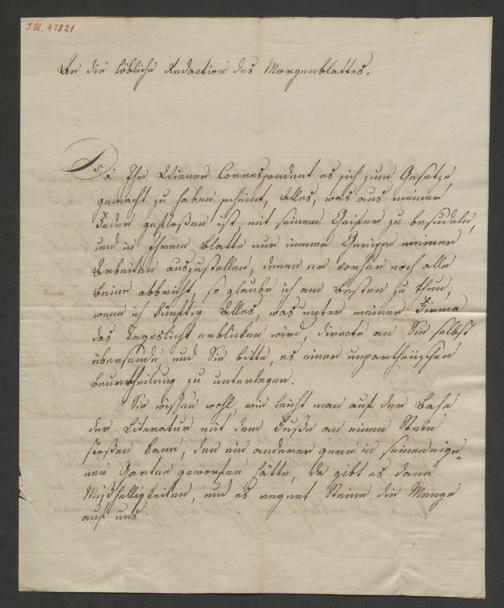 I.N. 42821
An die löbliche Redaction des Morgenblattes.
Da Ihr Wiener Correspondent es sich zum Gesetze
gemacht zu haben scheint, Alles, was aus meiner
Feder geflossen ist mit seinem Geifer zu besudeln,
und in Ihrem Blatte nur immer Gerippe meiner
Arbeiten aufzustellen, denen er vorher noch alle
Beine abbricht, so glaube ich am Besten zu thun,
wenn ich künftig Alles, was unter meiner Firma
das Tageslicht erblicken wird, directe an Sie selbst
übersende und Sie bitte, es einer unpartheiischen
Beurtheilung zu unterlegen.
Sie wissen wohl, wie leicht man auf der Bahn
der Literatur mit dem Fuße an einen Stein
stoßen kann, den ein anderer gern in seinen eige=
nen Garten geworfen hätte, da gibt es dann
Mißhelligkeiten, und es regnet Steine die Menge
auf uns.